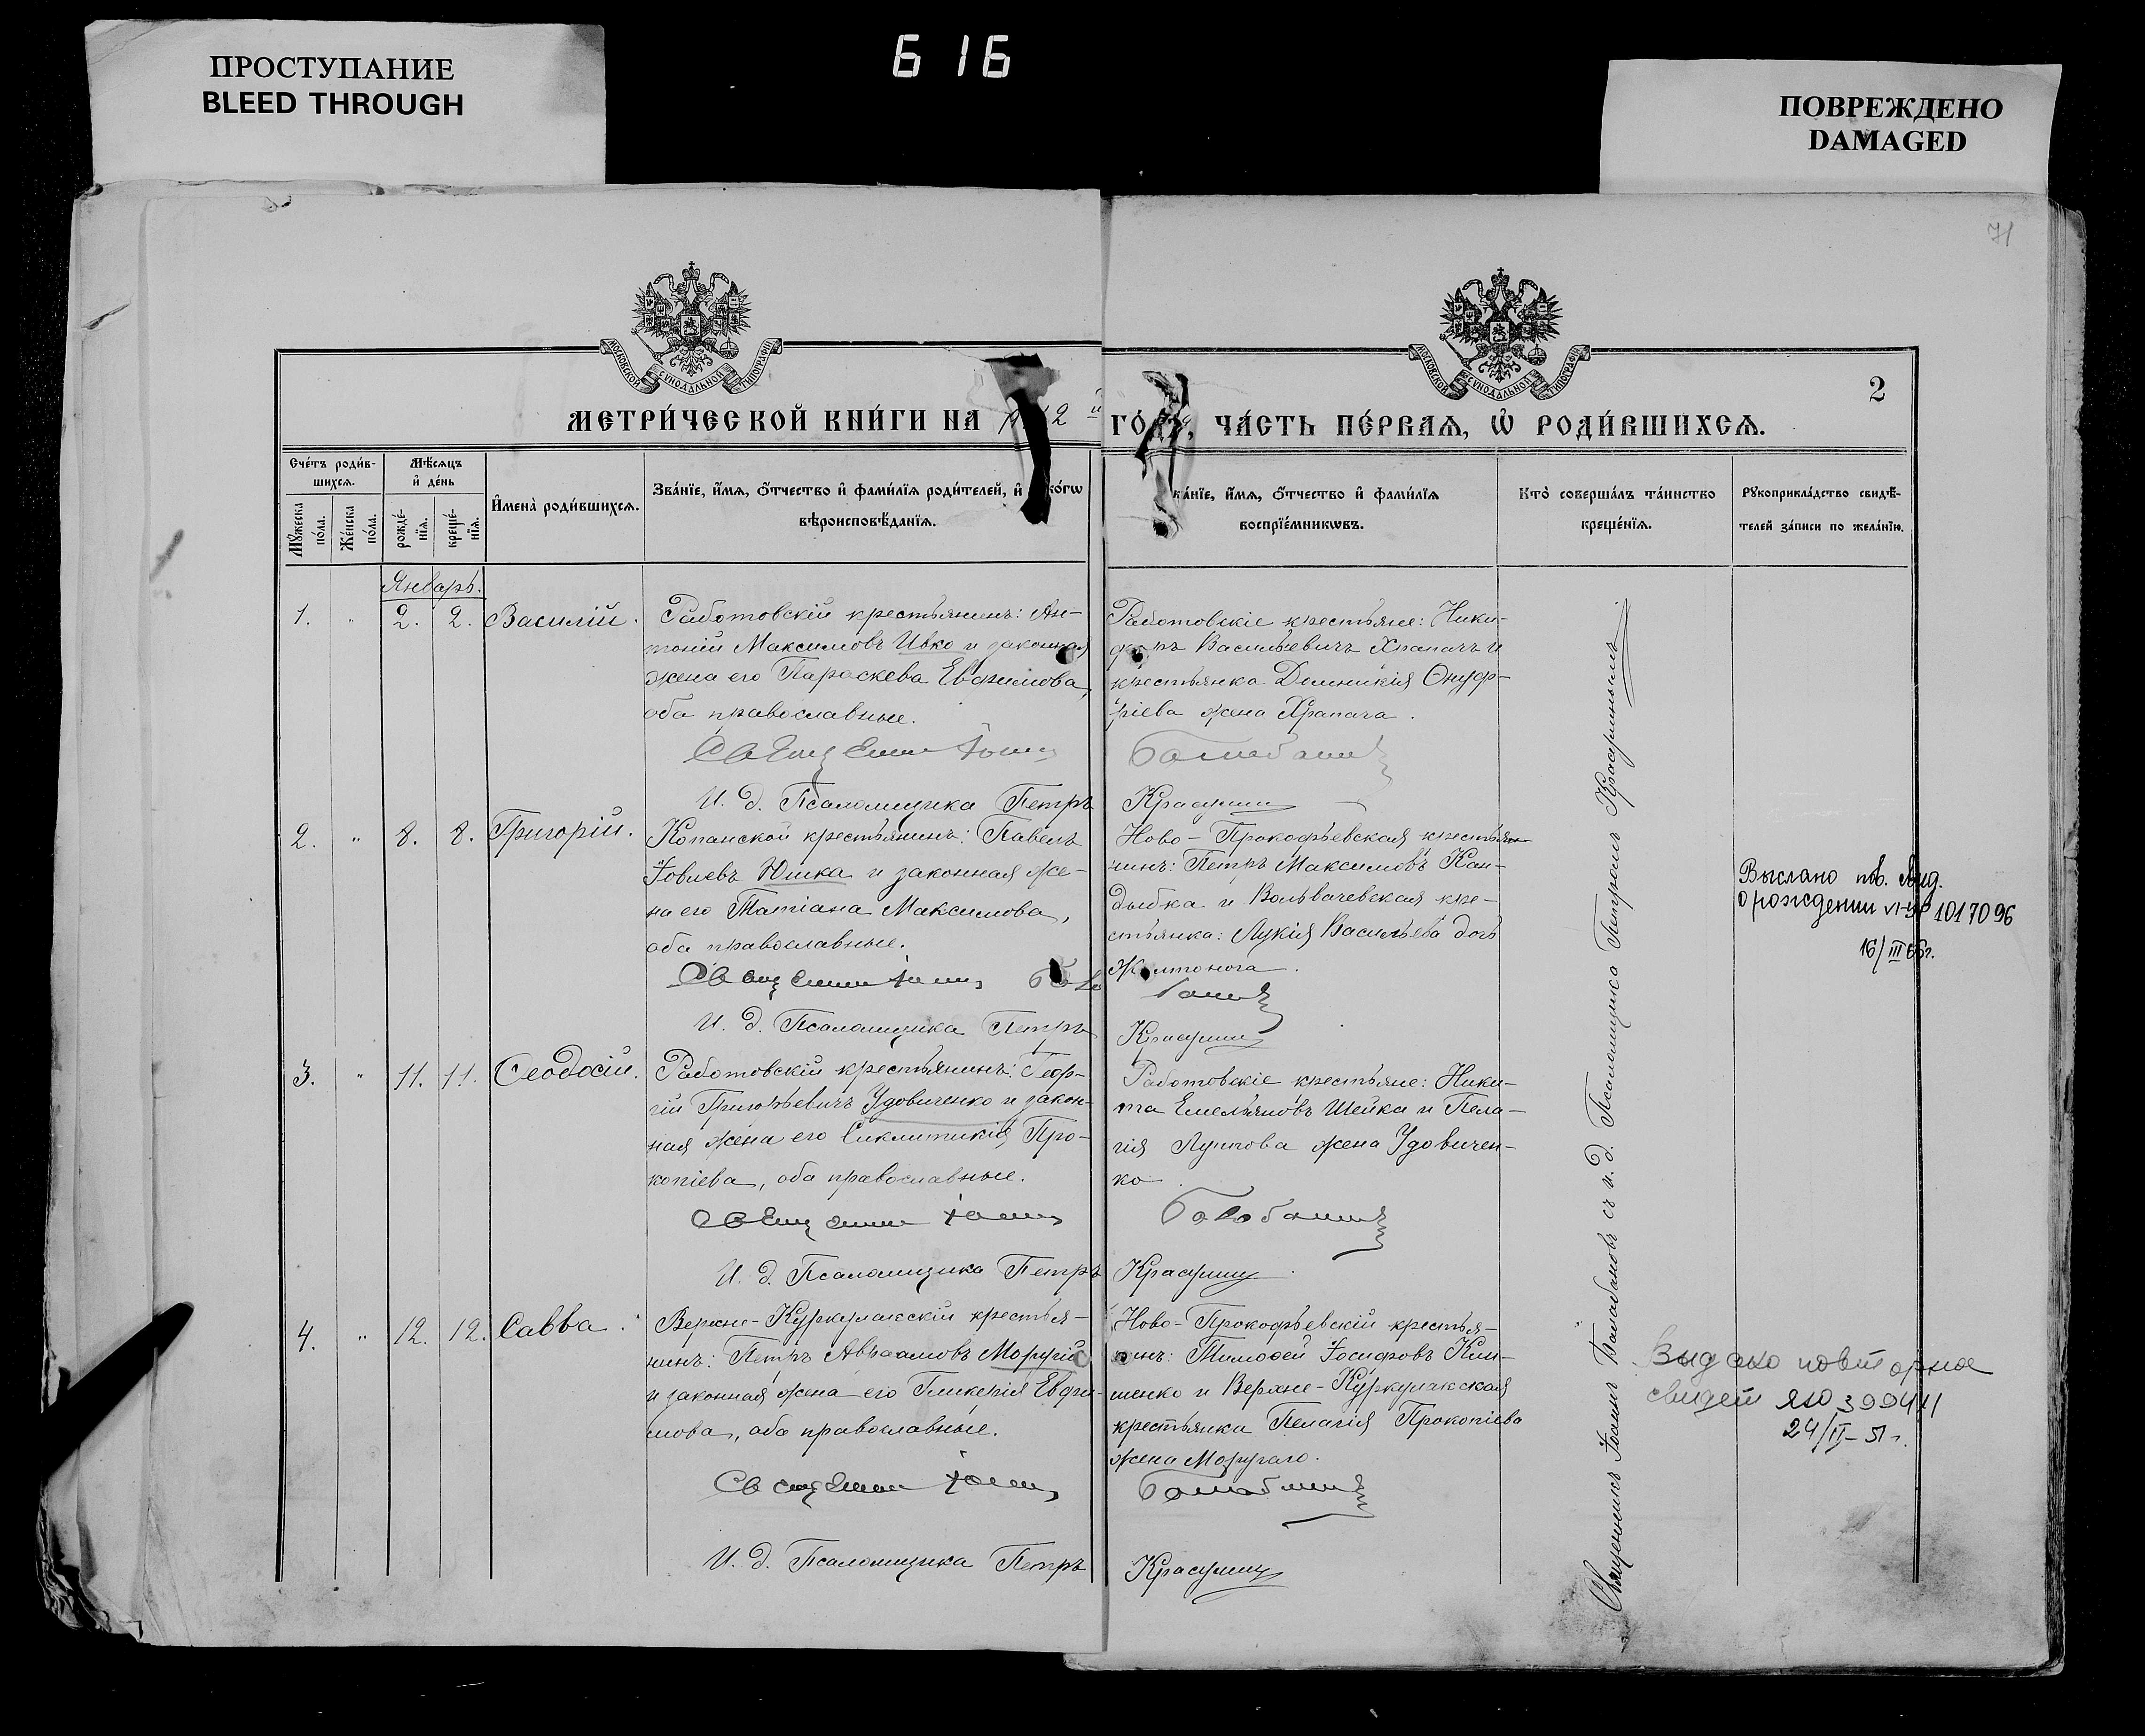 ПРОСТУПАНИЕ
BLEED THROUGH
616
ПОВРЕЖДЕНО
DAMAGED
71
МОСКОВСКОЙ СѴНОДАЛЬНОЙ ТИПОГРАФІИ
МОСКОВСКОЙ СѴНОДАЛЬНОЙ ТИПОГРАФІИ
2
МЕТРИ́ЧЕСКОЙ КНИ́ГИ НА 2 й ГО́ДЪ, ЧА́СТЬ ПЕ́РВАЯ, Ѡ҆ РОДИ́ВШИХСЯ.
Сче́тъ роди́в-
шихся.
Му́жеска по́ла.
Же́нска по́ла.
Мѣ́сяцъ
и҆ де́нь
рожде́-
нїя.
креще́-
нїя.
И҆мена̀ роди́вшихся.
Зва́нїе, и҆́мя, ѻ҆́тчество и҆ фами́лїя роди́телей, и҆ ко́гѡ
вѣроисповѣ́данїя.
ва́нїе, и҆́мя, ѻ҆́тчество и҆ фами́лїя
воспрїе́мникѡвъ.
Кто̀ соверша́лъ та́инство
креще́нїя.
Рукоприкла́дство свидѣ́-
телей за́писи по жела́нїю.
Январь.
1. " 2. 2. Василій.
Работовскій крестьянинъ: Ан-
тоній Максимовъ Ивко и законная
жена его Параскева Евфимова,
оба православные.
Священникъ Іоаннъ
И. д. Псаломщика Петръ
Работовскіе крестьяне: Ники-
форъ Васильевичъ Храпачъ и
крестьянка Домникія Онуф-
ріева жена Храпача.
Балабановъ
Красулинъ
2. " 8. 8. Григорій.
Копанской крестьянинъ: Павелъ
Іовлевъ Юшка и законная же-
на его Татіана Максимова,
оба православные.
Священникъ Іоаннъ
И. д. Псаломщика Петръ
Ново-Прокофьевская крестьян
нинъ: Петръ Максимовъ Кан-
дыбка и Вольвачевская кре-
стьянка: Лукія Васильева дочь
Желтонога.
Красулинъ
Выслано пов. свид.
о рождении VI-УР 1017096
16/III 66г.
3. " 11. 11. Ѳеодосій.
Работовскій крестьянинъ: Геор-
гій Григорьевичъ Удовиченко и закон-
ная жена его Синклитикія Про-
копіева, оба православные.
Священникъ Іоаннъ
И. д. Псаломщика Петръ
Работовскіе крестьяне: Ники-
та Емельяновъ Шейка и Пела-
гія Луппова жена Удовичен-
ко.
Балабановъ
Красулинъ
4. " 12. 12. Савва.
Верхне-Куркулакскій крестья-
нинъ: Петръ Авраамовъ Моругій
и законная жена его Гликерія Евфи-
мова, оба православные.
Священникъ Іоаннъ
И. д. Псаломщика Петръ
Ново-Прокофьевскій крестья-
нинъ: Тимофей Іосифовъ Кли-
шенко и Верхне-Куркулакская
крестьянка Пелагія Прокопіева
жена Моругаго.
Балабановъ
Красулинъ
Выдано повторное
свидет ЯЮ 399411
24/II-51г.
Священникъ Іоаннъ Балабановъ съ и. д. Псаломщика Петромъ Красулинымъ